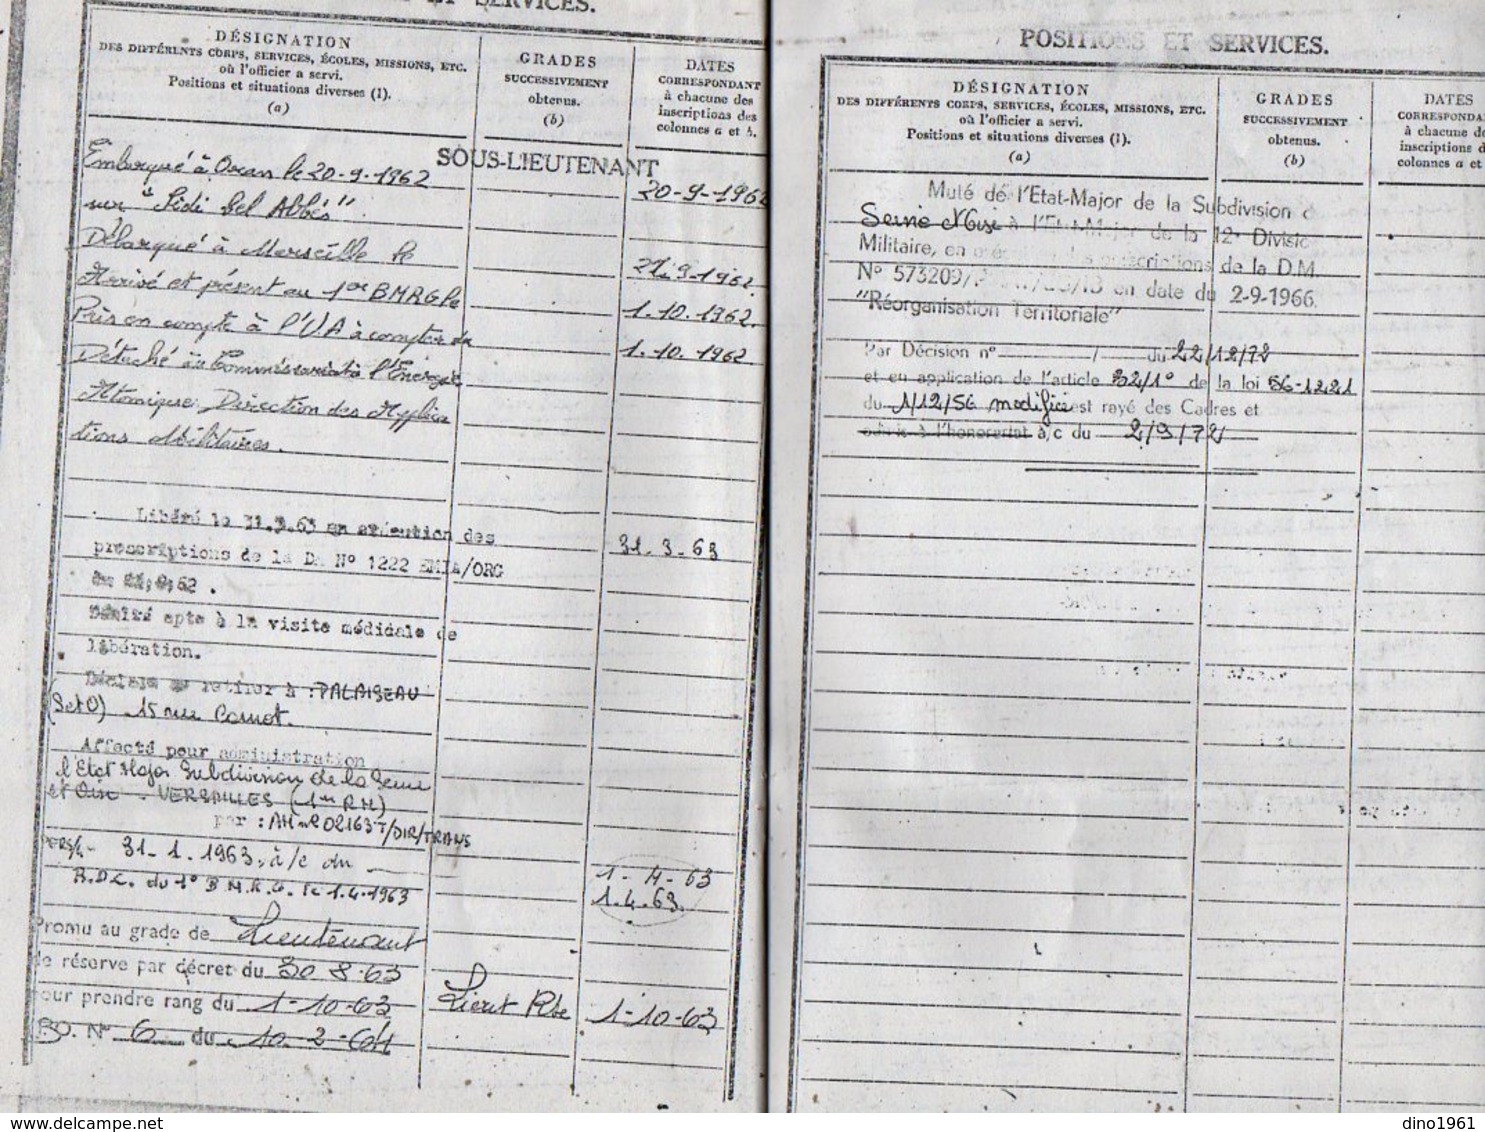 ET SERVICES.
DÉSIGNATION
DES DIFFÉRENTS CORPS, SERVICES, ÉCOLES, MISSIONS, ETC.
où l'officier a servi.
Positions et situations diverses (1).
(a)
GRADES
SUCCESSIVEMENT
obtenus.
(b)
DATES
CORRESPONDANT
à chacune des
inscriptions des
colonnes a et b.
SOUS-LIEUTENANT
Embarqué à Oran le 20-9-1962
20-9-1962
sur "Sidi bel Abbès".
Débarqué à Marseille le
21.9.1962.
Arrivé et présent au 1er BMRG le
1.10.1962.
Pris en compte à l'U.A à compter du
1.10.1962
Détaché au Commissariat à l'Énergie
Atomique Direction des Applica
tions Militaires.
Libéré le 31.3.63 en exécution des
31-3-63
prescriptions de la DM N° 1222 EMIA/ORG
62.
Déclaré apte à la visite médicale de
libération.
Déclare se retirer à : PALAISEAU
(S et O) 15 rue Carnot.
Affecté pour administration
l'Etat Major Subdivision de la Seine
et Oise - VERSAILLES (1ère RM)
par : AM n° 02163 T/DIR/TRANS
PERS/4 - 31-1-1963, à/c du
1-4-63
R.D.C. du 1° B.M.R.G. le 1.4.1963
1.4.63.
Promu au grade de Lieutenant
de réserve par décret du 30-8-63
pour prendre rang du 1-10-63
Lieut Rve
1-10-63
B.O. N° 6 du 10-2-64
POSITIONS ET SERVICES.
DÉSIGNATION
DES DIFFÉRENTS CORPS, SERVICES, ÉCOLES, MISSIONS, ETC.
où l'officier a servi.
Positions et situations diverses (1).
(a)
GRADES
SUCCESSIVEMENT
obtenus.
(b)
DATES
CORRESPONDANT
à chacune de
inscriptions d
colonnes a et
Muté de l'Etat-Major de la Subdivision d
Seine &Oise à l'Etat-Major de la 12e Divisio
Militaire, en prescriptions de la D.M.
N° 573209/ en date du 2-9-1966.
"Réorganisation Territoriale"
Par Décision n° / du 22/12/72
et en application de l'article 32/1° de la loi 56-1221
du 1/12/56 modifié est rayé des Cadres et
admis à l'honorariat à/c du 2/9/72
dino1961